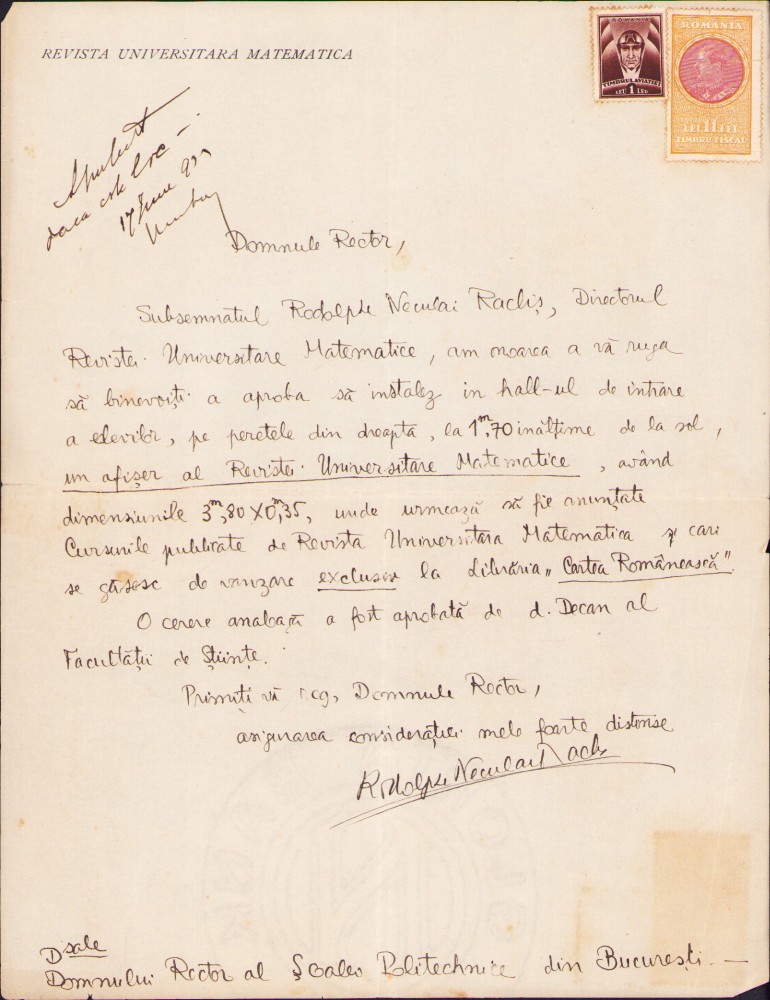 REVISTA UNIVERSITARA MATEMATICA
ROMANIA
TIMBRUL AVIAȚIEI
LEU 1 LEU
ROMANIA
LEI 11 LEI
TIMBRU FISCAL
daca este loc
17 Iunie 93
Domnule Rector,
Subsemnatul Rodolphe Neculai Racliș, Directorul
Revistei Universitare Matematice, am onoarea a vă ruga
să binevoiți a aproba să instalez in hall-ul de intrare
a elevilor, pe peretele din dreapta, la 1m,70 inălțime de la sol,
un afișer al Revistei Universitare Matematice, având
dimensiunile 3m,80 X 0m,35, unde urmează să fie anunțate
Cursurile publicate de Revista Universitara Matematica și cari
se găsesc de vanzare exclusiv la Librăria „Cartea Românească".
O cerere analoagă a fost aprobată de d. Decan al
Facultății de Științe.
Primiți vă rog, Domnule Rector,
asigurarea considerației mele foarte distinse
Rodolphe Neculai Racliș
Dsale
Domnului Rector al Școalei Politechnice din București. —